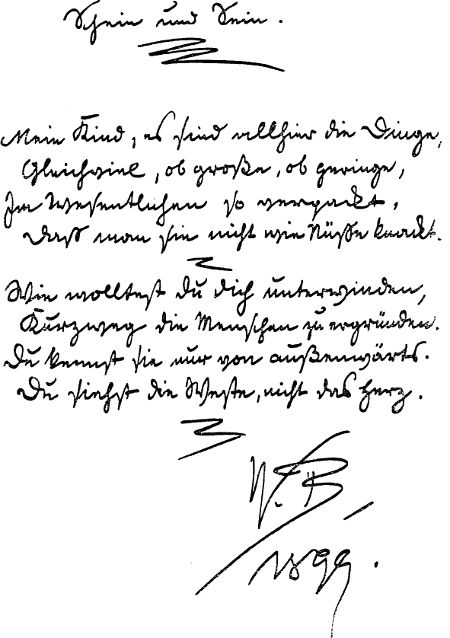 Schein und Sein.
Mein Kind, es sind allhier die Dinge,
Gleichviel, ob große, ob geringe,
Im Wesentlichen so verpackt,
Daß man sie nicht wie Nüsse knackt.
Wie wolltest du dich unterwinden,
Kurzweg die Menschen zu ergründen.
Du kennst sie nur von außenwärts.
Du siehst die Weste, nicht das Herz.
W. B.
1899.